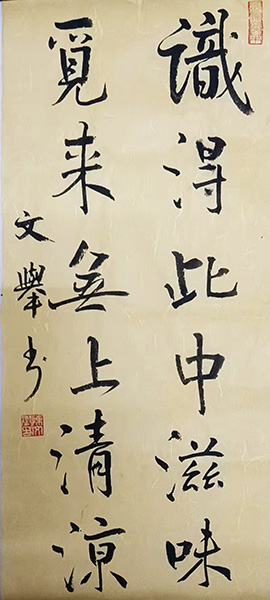 識得此中滋味
覓来無上清涼
文舉书